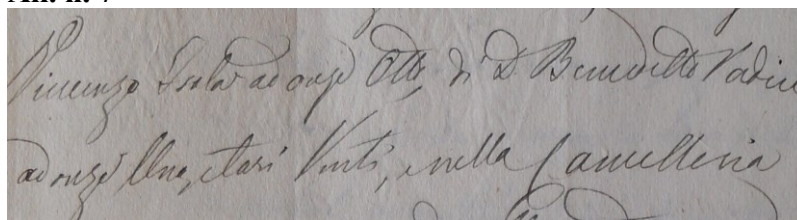 Vincenzo Isola ad onze Otto, di D. Benedetto Vadi
ad onze Una, e tari Venti, e nella Cancelleria